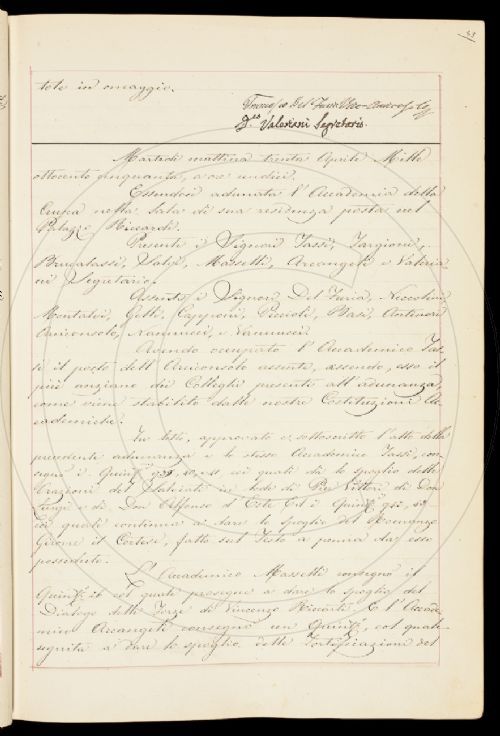 43
tote in omaggio.
Francesco Del Furia Vice-
Valeriani Segretario.
Martedì mattina trenta Aprile Mille
ottocento cinquanta, a ore undici.
Essendosi adunata l'Accademia della
Crusca nella Sala di sua residenza posta nel
Palazzo Riccardi.
Presenti i Signori Tassi, Targioni,
Brucalassi, Salvi, Massetti, Arcangeli e Valeria
ni Segretario.
Assenti i Signori Del Furia, Niccolini,
Montalvi, Gelli, Capponi, Puccioli, Basi, Antinori
Arciconsolo, Nannucci, e Vannucci.
Avendo occupato l'Accademico Tas-
si il posto dell'Arciconsolo assente, essendo esso il
più anziano dei Colleghi presenti all'adunanza,
come viene stabilito dalle nostre Costituzioni Ac
cademiche.
Fu letto, approvato e sottoscritto l'atto della
precedente adunanza e lo stesso Accademico Tassi, con
segnò i Quint. coi quali dà lo spoglio delle
Orazioni del Salviati in lode di Pier Vettori di Don
Luigi e di Don Alfonso d'Este Ed i Quint.
coi quali continua a dare lo spoglio del
Girone il Cortese, fatto sul Testo a penna da esso
posseduto.
L'Accademico Massetti consegnò il
Quint. 26 col quale prosegue a dare lo spoglio del
Dialogo delle Forze di Vincenzo E l'Accade
mico Arcangeli consegnò un Quint. col quale
seguita a dare lo spoglio delle Fortificazioni del